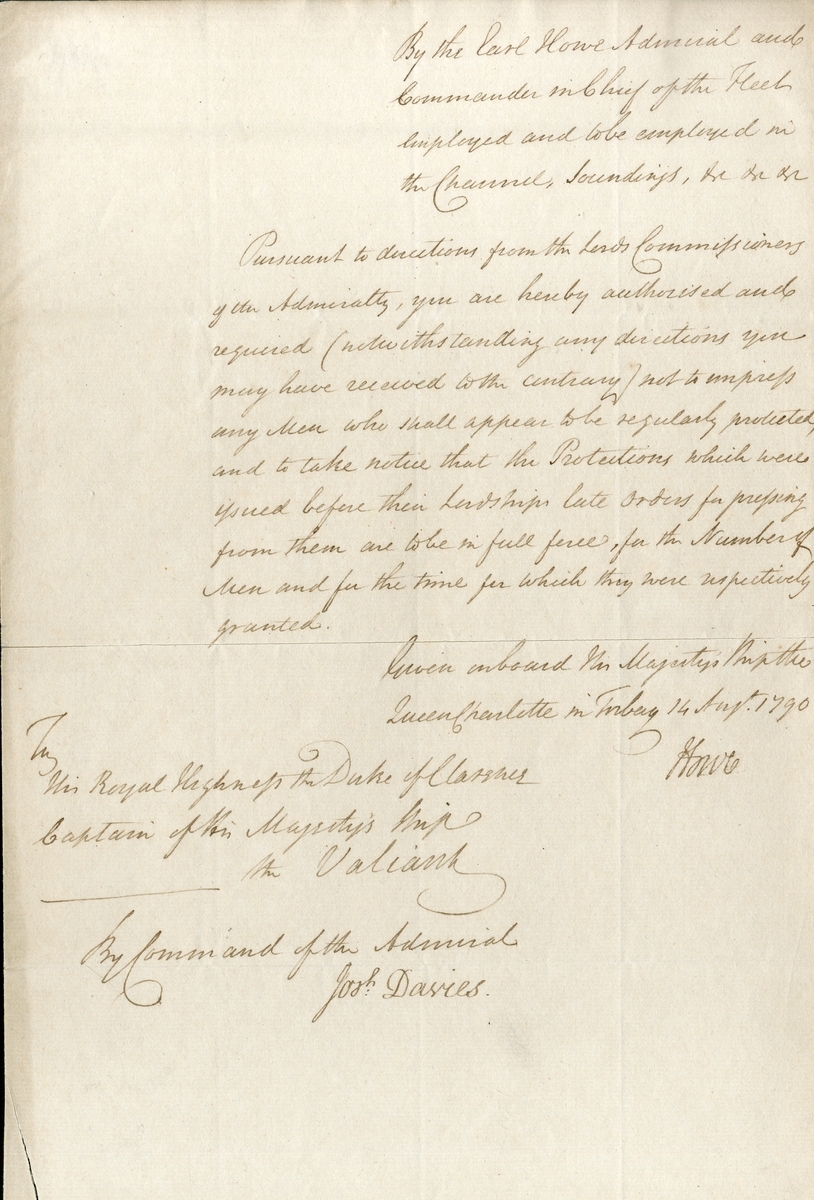 By the Earl Howe Admiral and
Commander in Chief of the Fleet
employed and to be employed in
the Channel, Soundings, &c &c &c
Pursuant to directions from the Lords Commissioners
of the Admiralty, you are hereby authorised and
required (notwithstanding any directions you
may have received to the contrary) not to impress
any Men who shall appear to be regularly protected,
and to take notice that the Protections which were
issued before their Lordships late Orders for pressing
from them are to be in full force, for the Number of
Men and for the time for which they were respectively
granted.
Given onboard His Majesty's Ship the
Queen Charlotte in Torbay 14 Augt. 1790
Howe
To
His Royal Highness the Duke of Clarence
Captain of His Majesty's Ship
the Valiant
By Command of the Admiral
Josh. Davies.